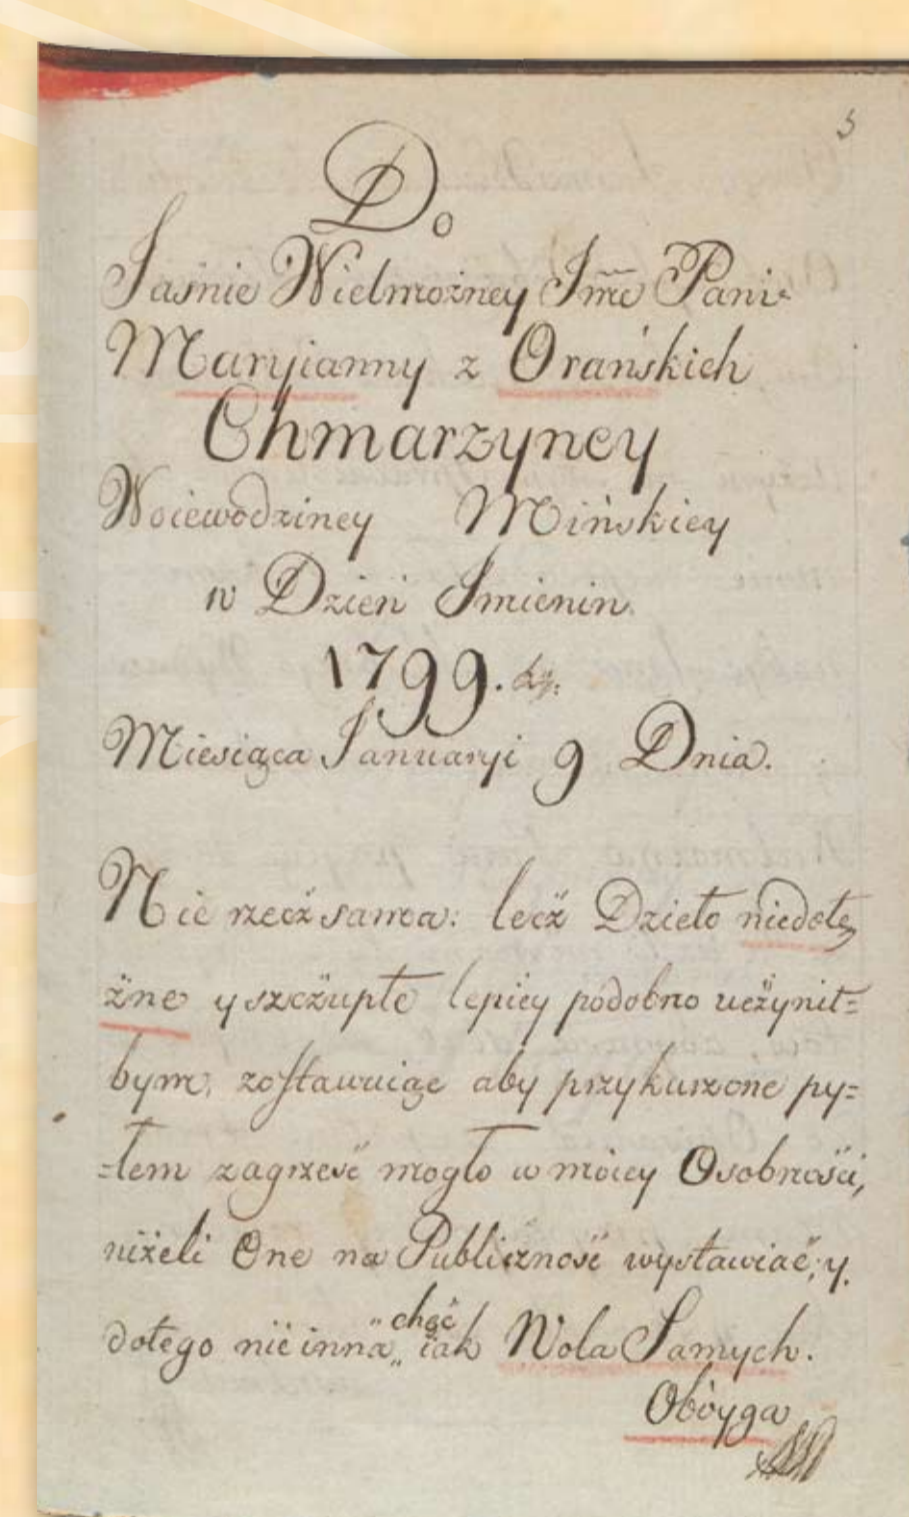 5
Do
Jaśnie Wielmożney Jmc̃ Pani
Maryianny z Orańskich
Chmarzyney
Woiewodziney Mińskiey
w Dzień Jmienin.
1799.
Miesiąca Januaryi 9 Dnia.
Nie rzecż sama: lecż Dzieło niedołę
żne y szcżupłe lepiey podobno ucżynił=
bym, zostawuiąc aby przykurzone py=
=łem zagrześć mogło w moiey Osobności,
niżeli One na Publiczność wystawiać; y.
dotego nie inna „chęć„ iak Wola Samych.
Obóyga